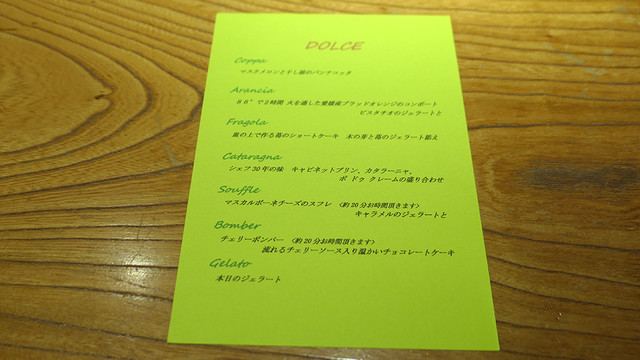 DOLCE
Coppa
マスクメロンと干し柿のパンナコッタ
Arancia
86°で2時間 火を通した愛媛産ブラッドオレンジのコンポート
ピスタチオのジェラートと
Fragola
皿の上で作る苺のショートケーキ 木の芽と苺のジェラート添え
Cataragna
シェフ30年の味 キャビネットプリン、カタラーニャ、
ポ ドゥ クレームの盛り合わせ
Souffle
マスカルポーネチーズのスフレ 〈約20分お時間頂きます〉
キャラメルのジェラートと
Bomber
チェリーボンバー 〈約20分お時間頂きます〉
流れるチェリーソース入り温かいチョコレートケーキ
Gelato
本日のジェラート